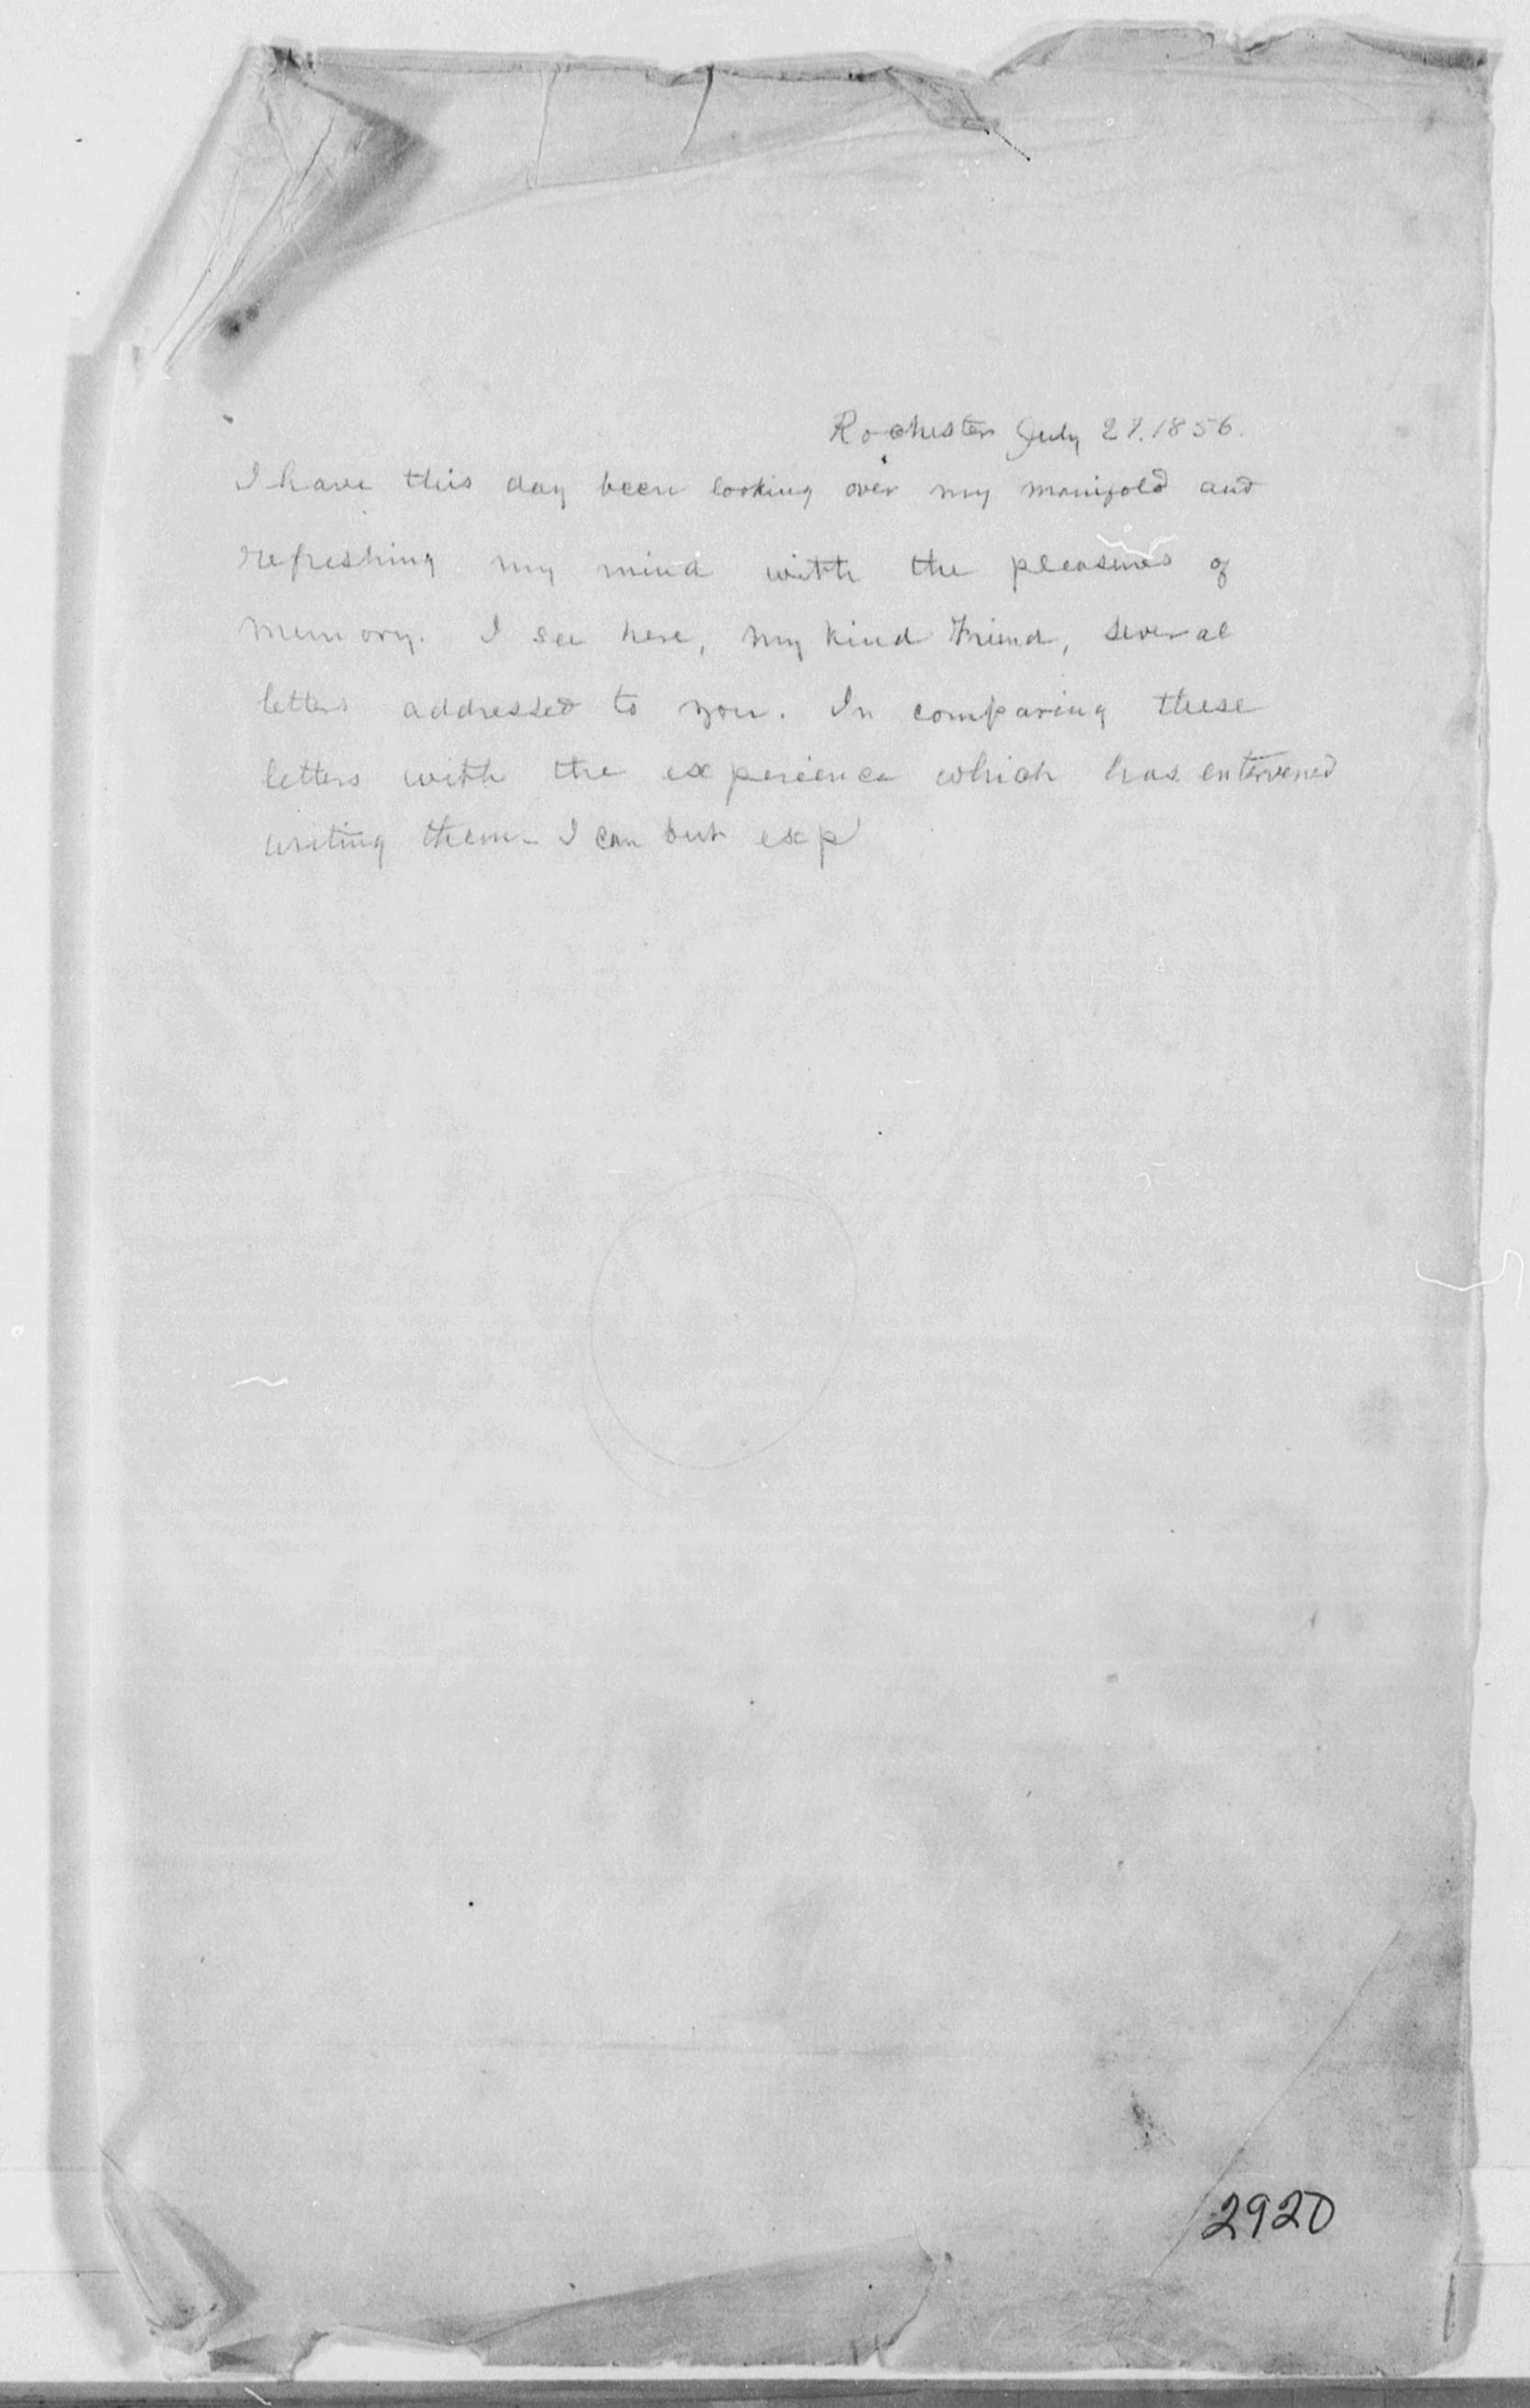 Rochester July 27. 1856.
I have this day been looking over my manifold and
refreshing my mind with the pleasures of
memory. I see here, my kind Friend, several
letters addressed to you. In comparing these
letters with the experience which has entervened
writing them - I can but exp
2920